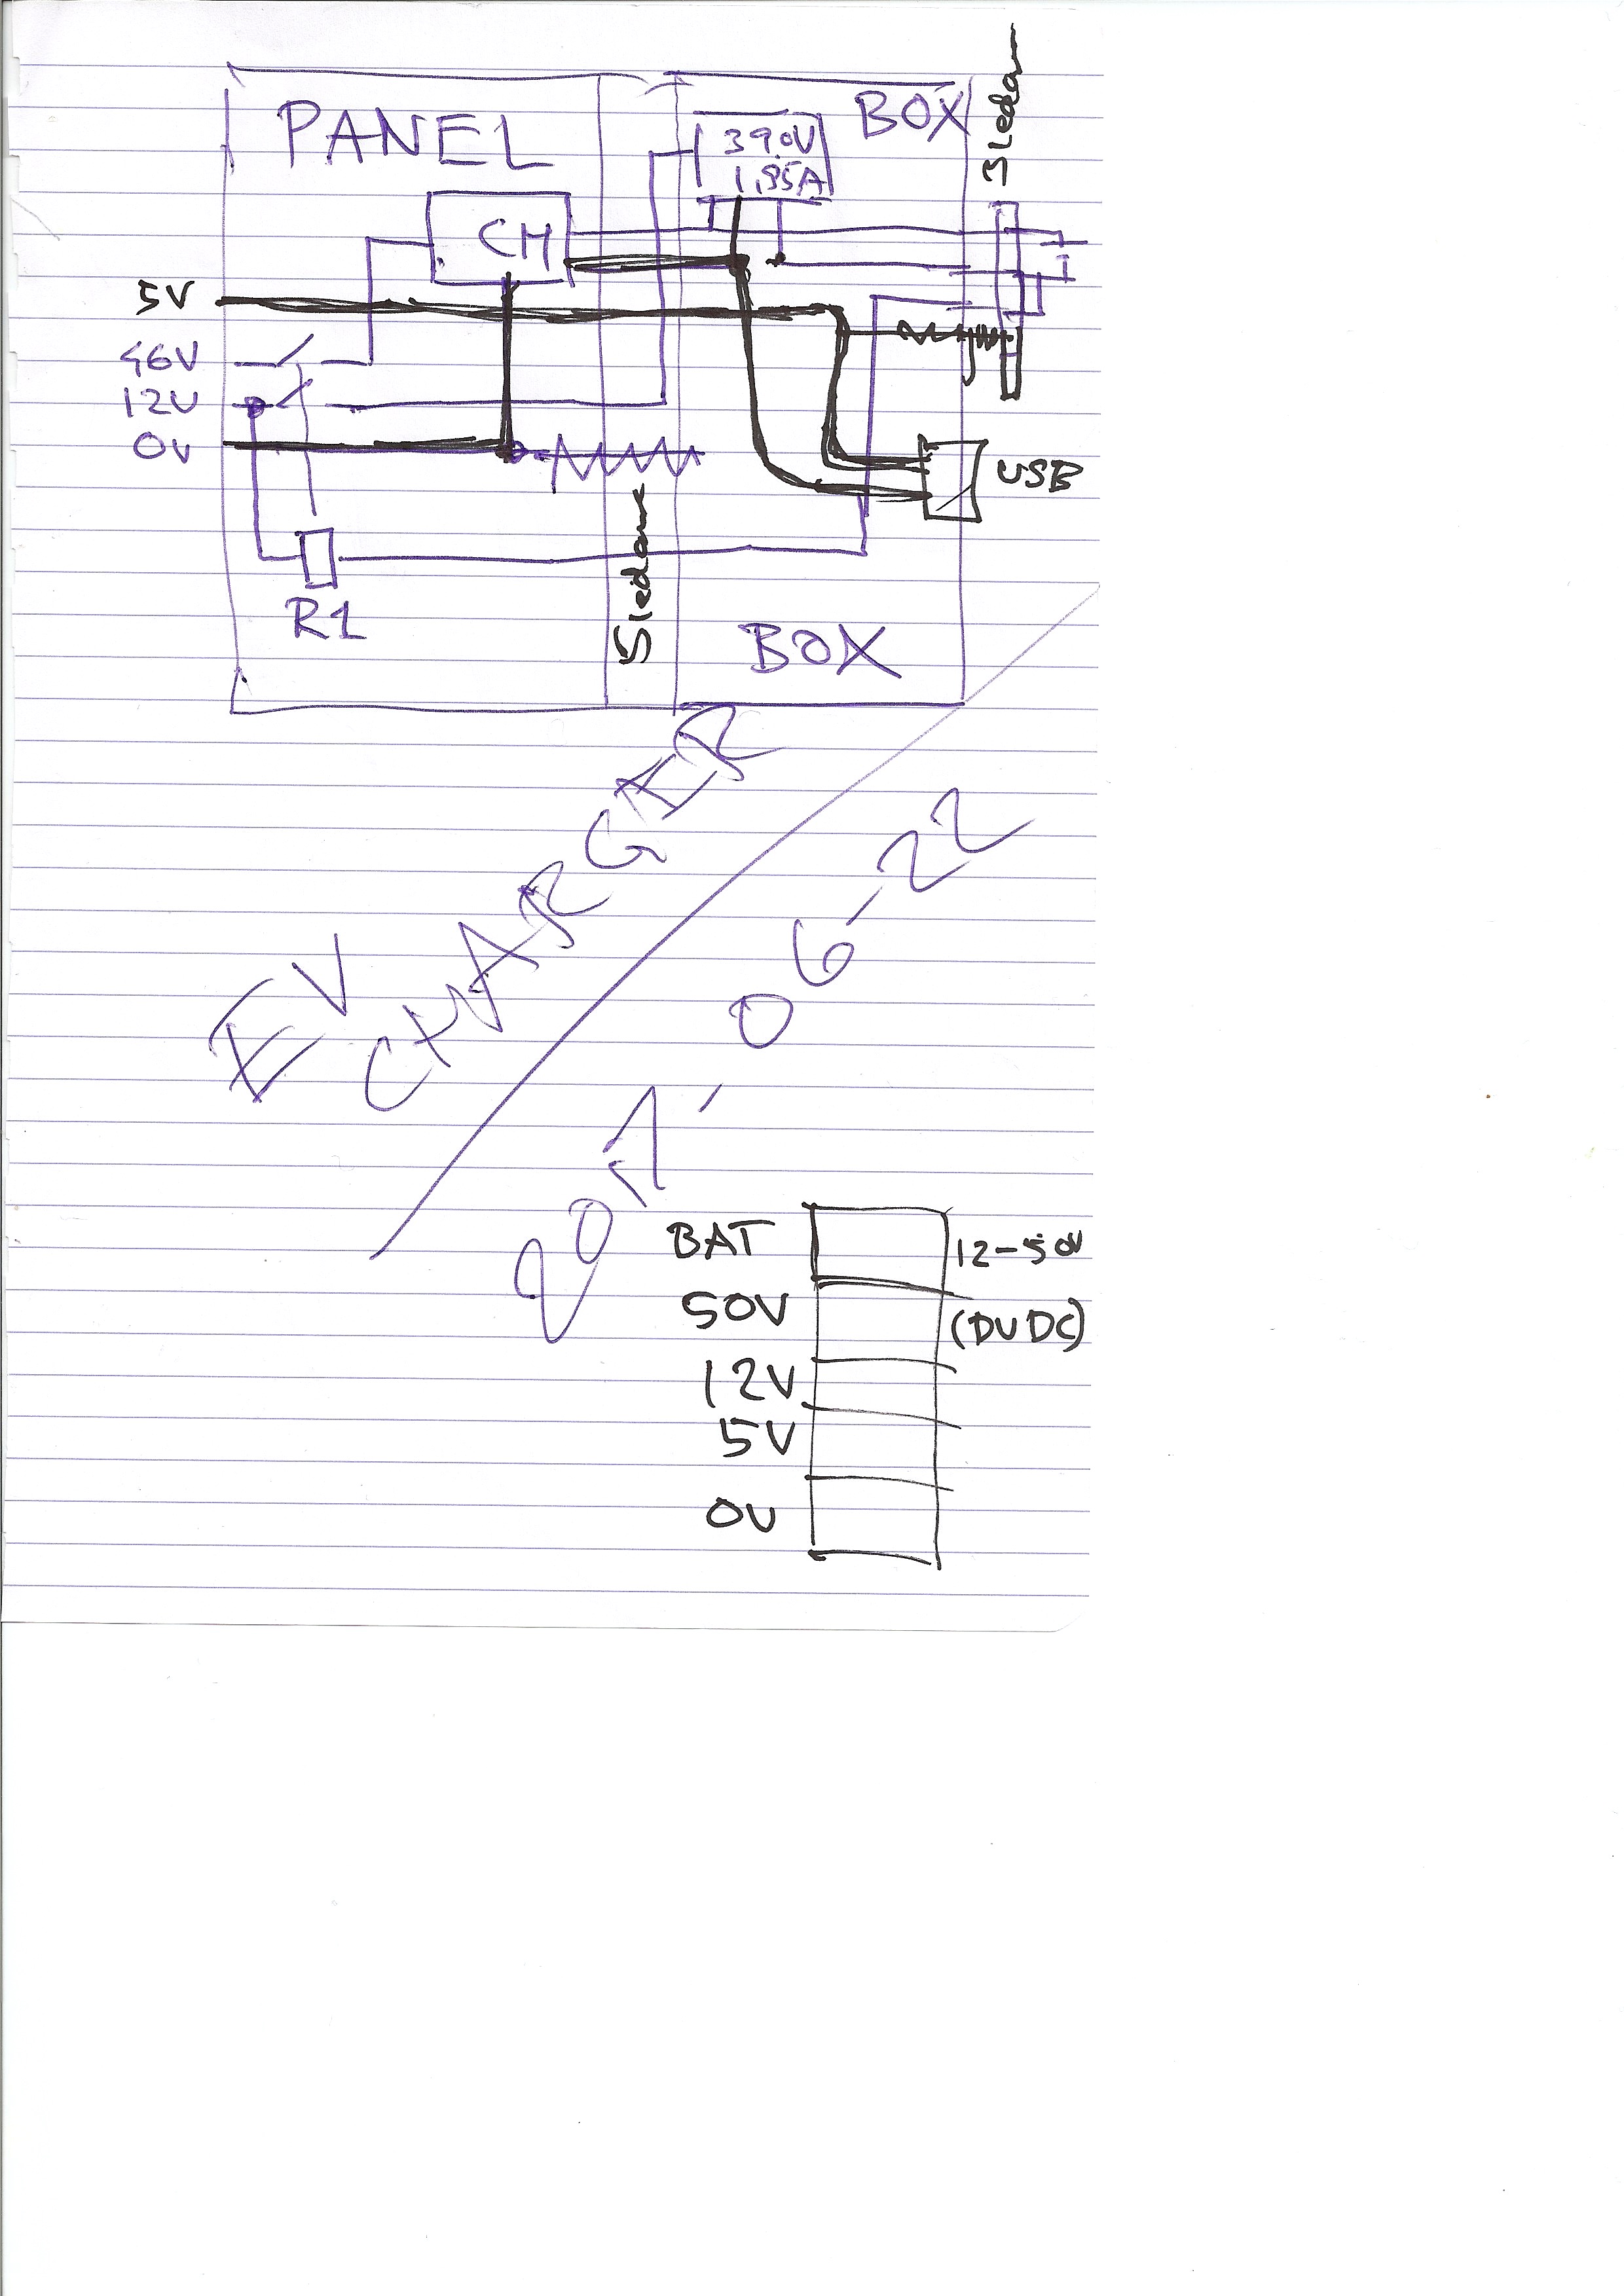 PANEL
BOX
39.0V
1,95A
CH
5V
46V
12V
0V
USB
R1
BOX
EV
CHARGER
2017-06-22
BAT
12-50V
50V
(DUDC)
12V
5V
0V